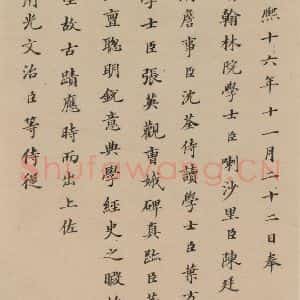 熙十六年十一月十二日奉
翰林院學士臣喇沙里臣陳廷
詹事臣沈荃侍讀學士臣葉方
學士臣張英觀曹娥碑真跡臣
亶聰明銳意典學經史之暇
故古蹟應時而出上佐
光文治臣等侍從
Shufawang.CN